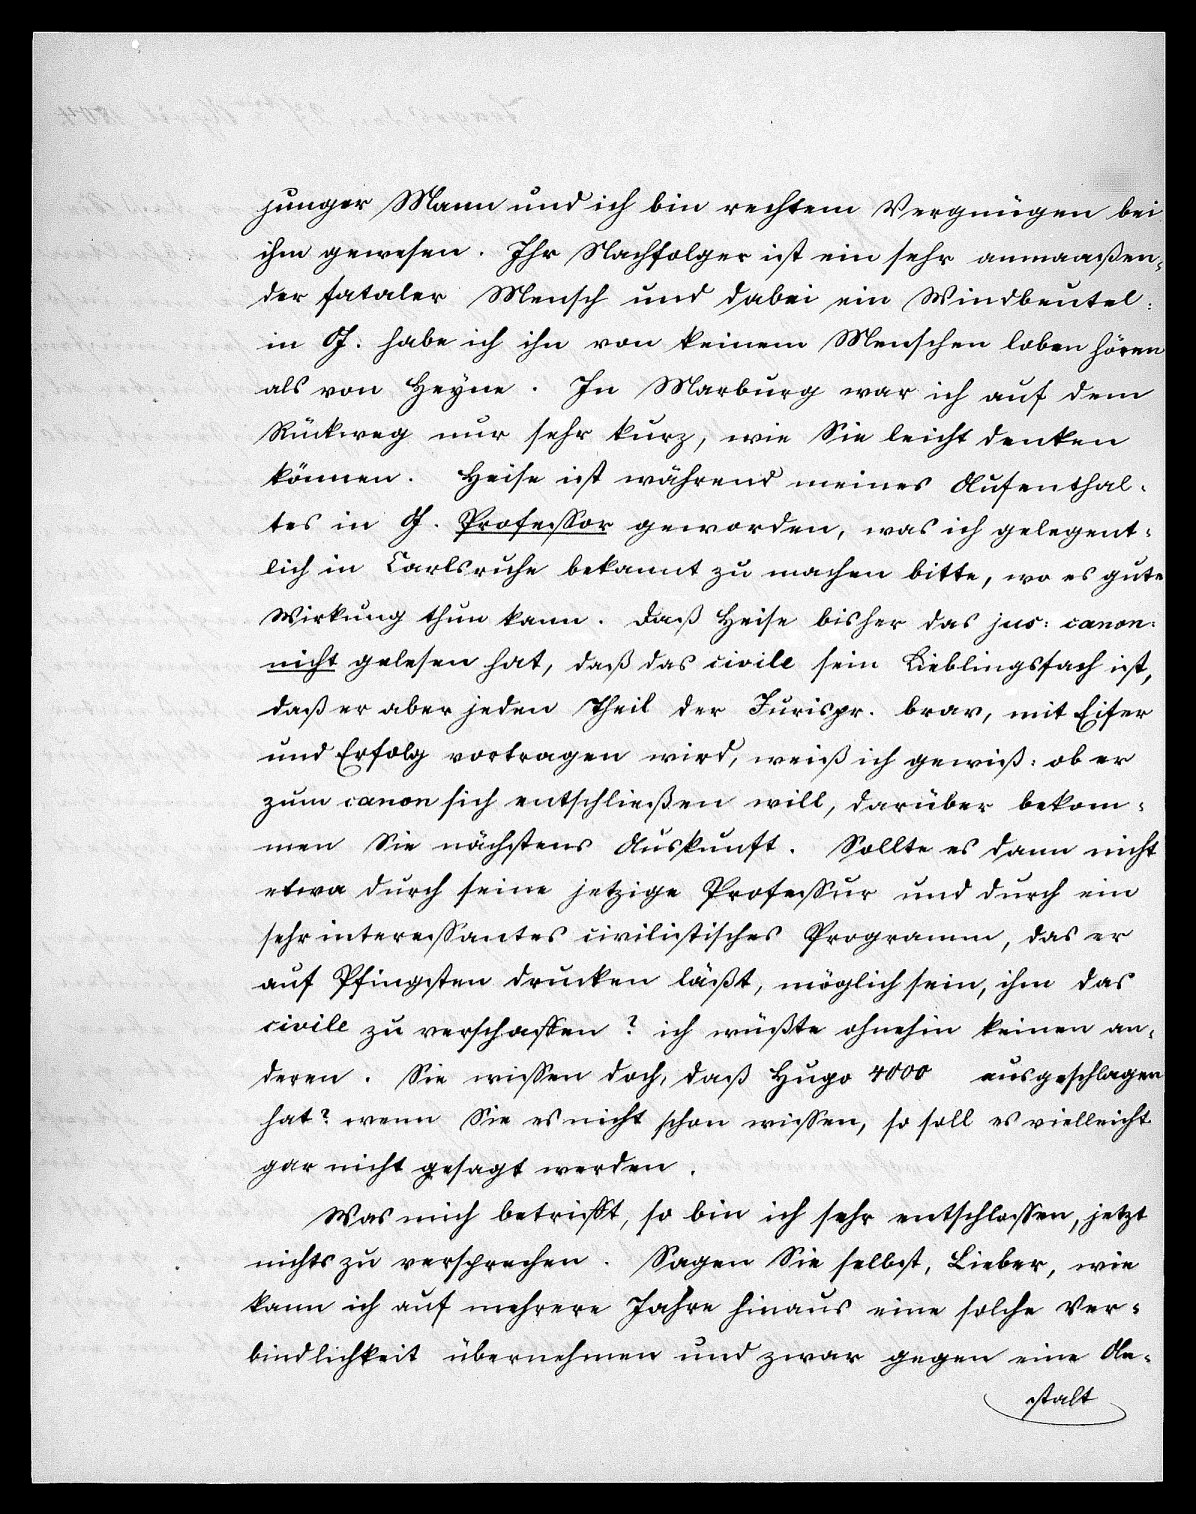 junger Mann und ich bin rechtem Vergnügen bei
ihm gewesen. Ihr Nachfolger ist ein sehr anmaaßen-
der fataler Mensch und dabei ein Windbeutel:
in G. habe ich ihn von keinem Menschen loben hören
als von Heyne. In Marburg war ich auf dem
Rückweg nur sehr kurz, wie Sie leicht denken
können. Heise ist während meines Aufenthal-
tes in G. Professor geworden, was ich gelegent-
lich in Carlsruhe bekannt zu machen bitte, wo es gute
Wirkung thun kann. Daß Heise bisher das jus: canon:
nicht gelesen hat, daß das civile sein Lieblingsfach ist,
daß er aber jeden Theil der Jurispr. brav, mit Eifer
und Erfolg vortragen wird, weiß ich gewiß: ob er
zum canon sich entschließen will, darüber bekom-
men Sie nächstens Auskunft. Sollte es dann nicht
etwa durch seine jetzige Professur und durch ein
sehr interessantes civilistisches Programm, das er
auf Pfingsten drucken läßt, möglich sein, ihm das
civile zu verschaffen? ich wüßte ohnehin keinen an-
deren. Sie wissen doch, daß Hugo 4000 ausgeschlagen
hat? wenn Sie es nicht schon wissen, so soll es vielleicht
gar nicht gesagt werden.
Was mich betrifft, so bin ich sehr entschlossen, jetzt
nichts zu versprechen. Sagen Sie selbst, Lieber, wie
kann ich auf mehrere Jahre hinaus eine solche Ver-
bindlichkeit übernehmen und zwar gegen eine An-
stalt